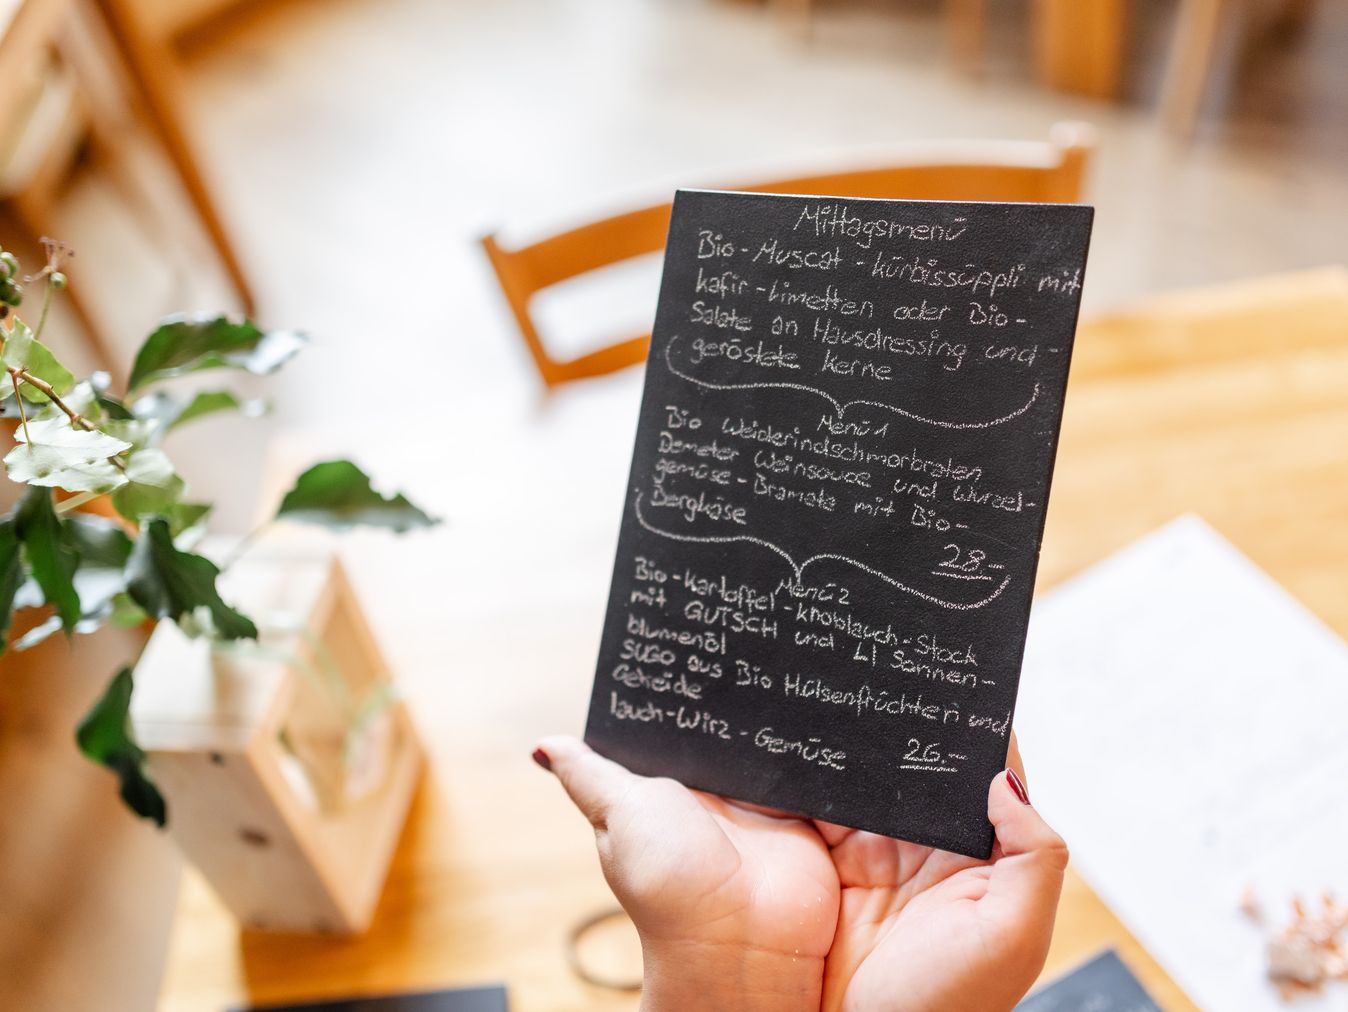 Mittagsmenü
Bio-Muscat-kürbissüppli mit
kafir-Limetten oder Bio-
Salate an Hausdressing und-
geröstete kerne
Menü 1
Bio Weiderindschmorbraten
Demeter Weinsauce und Wurzel-
gemüse-Bramata mit Bio-
Bergkäse
28.-
Menü 2
Bio-Kartoffel-knoblauch-Stock
mit GUTSCH und LI Sonnen-
blumenöl
SUGO aus Bio Hülsenfrüchten und
Getreide
lauch-Wirz-Gemüse 26.-